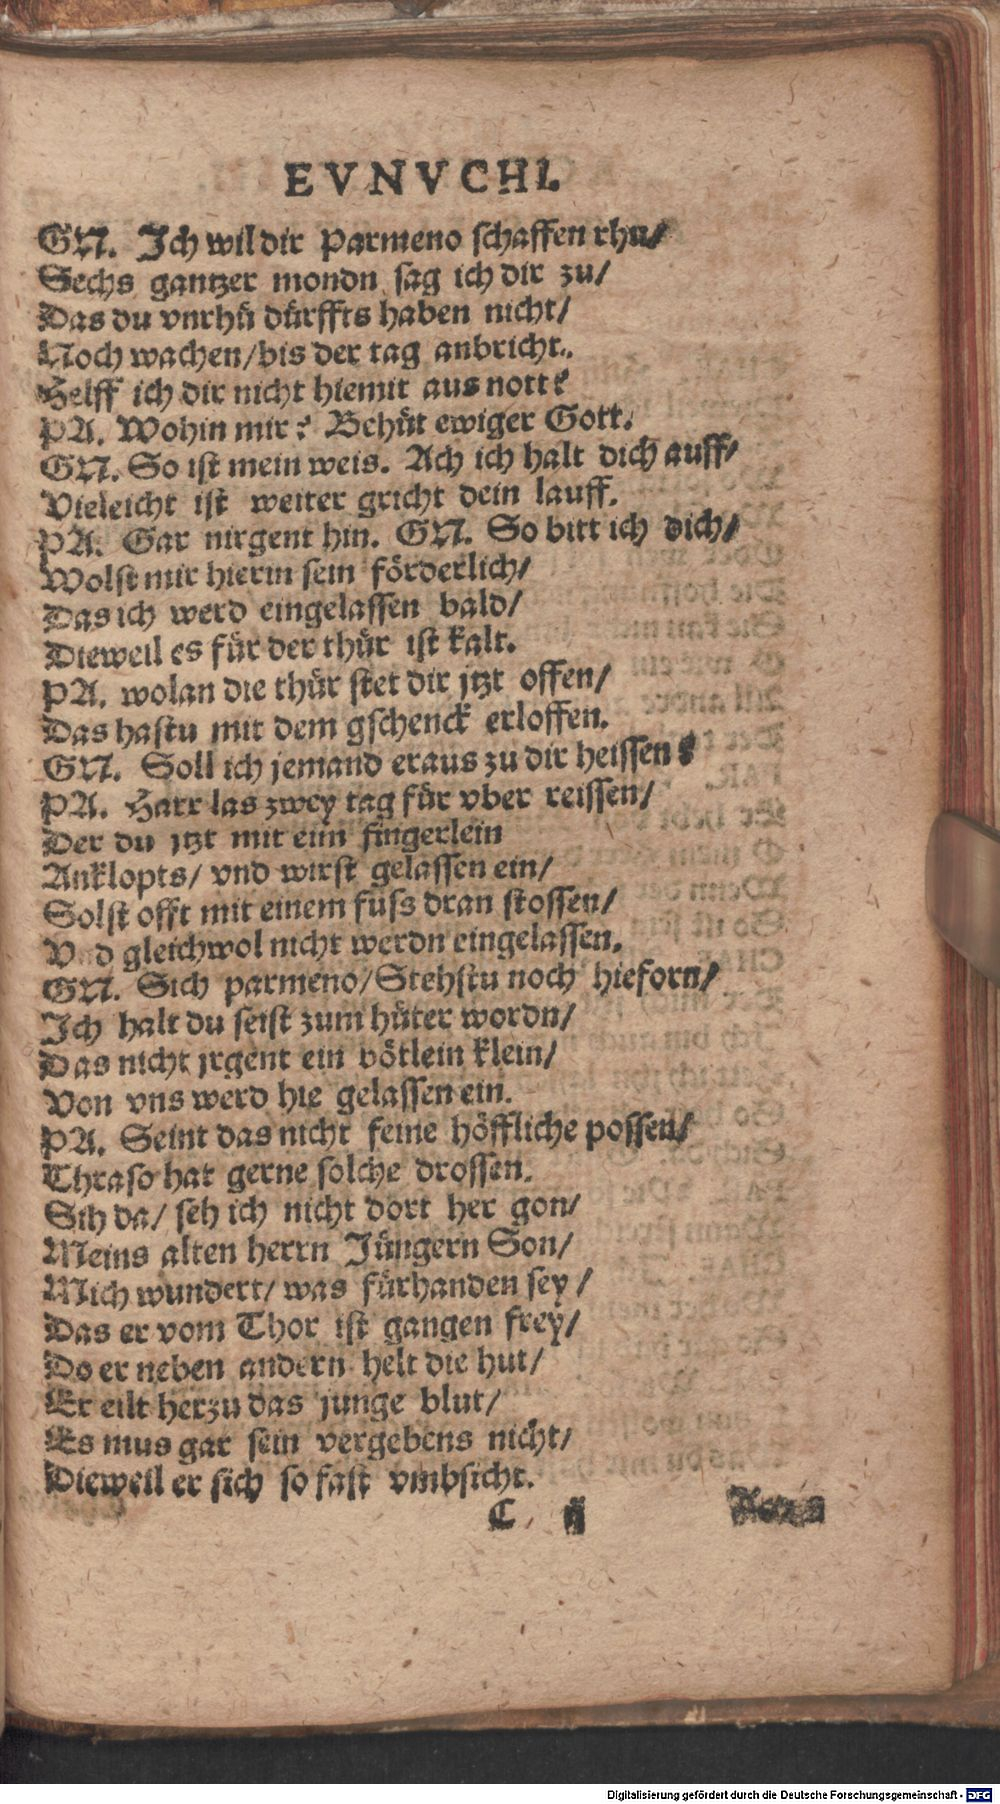 EVNVCHI.
GN. Ich wil dir Parmeno schaffen rhu/
Sechs gantzer mondn sag ich dir zu/
Das du vnrhü dürffts haben nicht/
Noch wachen/bis der tag anbricht.
Helff ich dir nicht hiemit aus nott?
PA. Wohin mir? Behüt ewiger Gott.
GN. So ist mein weis. Ach ich halt dich auff/
Vieleicht ist weiter gricht dein lauff.
PA. Gar nirgent hin. GN. So bitt ich dich/
Wolst mir hierin sein förderlich/
Das ich werd eingelassen bald/
Dieweil es für der thür ist kalt.
PA. wolan die thür stet dir jtzt offen/
Das hastu mit dem gschenck erloffen.
GN. Soll ich jemand eraus zu dir heissen?
PA. Harr las zwey tag für vber reissen/
Der du jtzt mit eim fingerlein
Anklopts/ vnd wirst gelassen ein/
Solst offt mit einem fuss dran stossen/
Vnd gleichwol nicht werdn eingelassen.
GN. Sich parmeno/Stehstu noch hieforn/
Ich halt du seist zum hüter wordn/
Das nicht jrgent ein bötlein klein/
Von vns werd hie gelassen ein.
PA. Seint das nicht feine höffliche possen/
Thraso hat gerne solche drossen.
Sih da/ seh ich nicht dort her gon/
Meins alten herrn Jüngern Son/
Mich wundert/ was fürhanden sey/
Das er vom Thor ist gangen frey/
Do er neben andern helt die hut/
Er eilt herzu das junge blut/
Es mus gar sein vergebens nicht/
Dieweil er sich so fast vmbsicht.
C ij
Digitalisierung gefördert durch die Deutsche Forschungsgemeinschaft - DFG